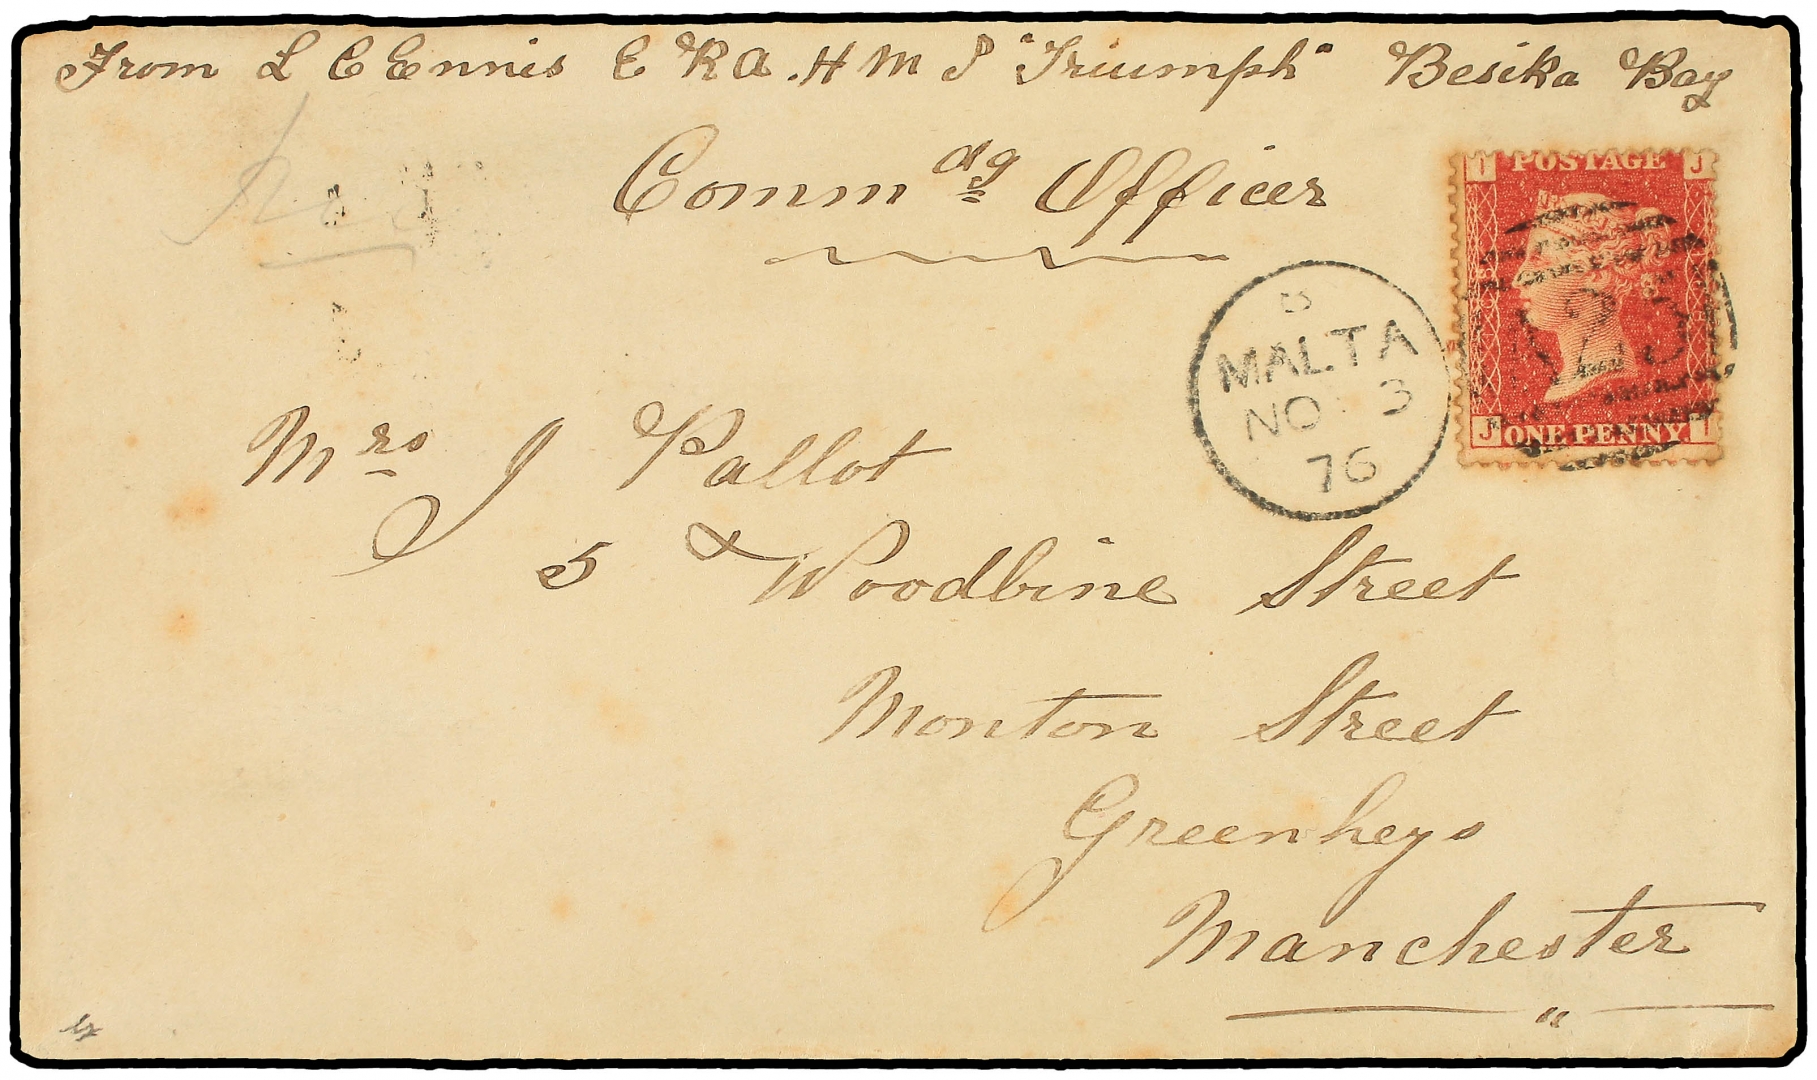 From L C Ennis E R A. H M S "Triumph" Besika Bay
Commdg Officer
I POSTAGE J
B
MALTA
NO 3
76
J ONE PENNY I
Mrs J Pallot
5 Woodbine Street
Monton Street
Greenheys
Manchester